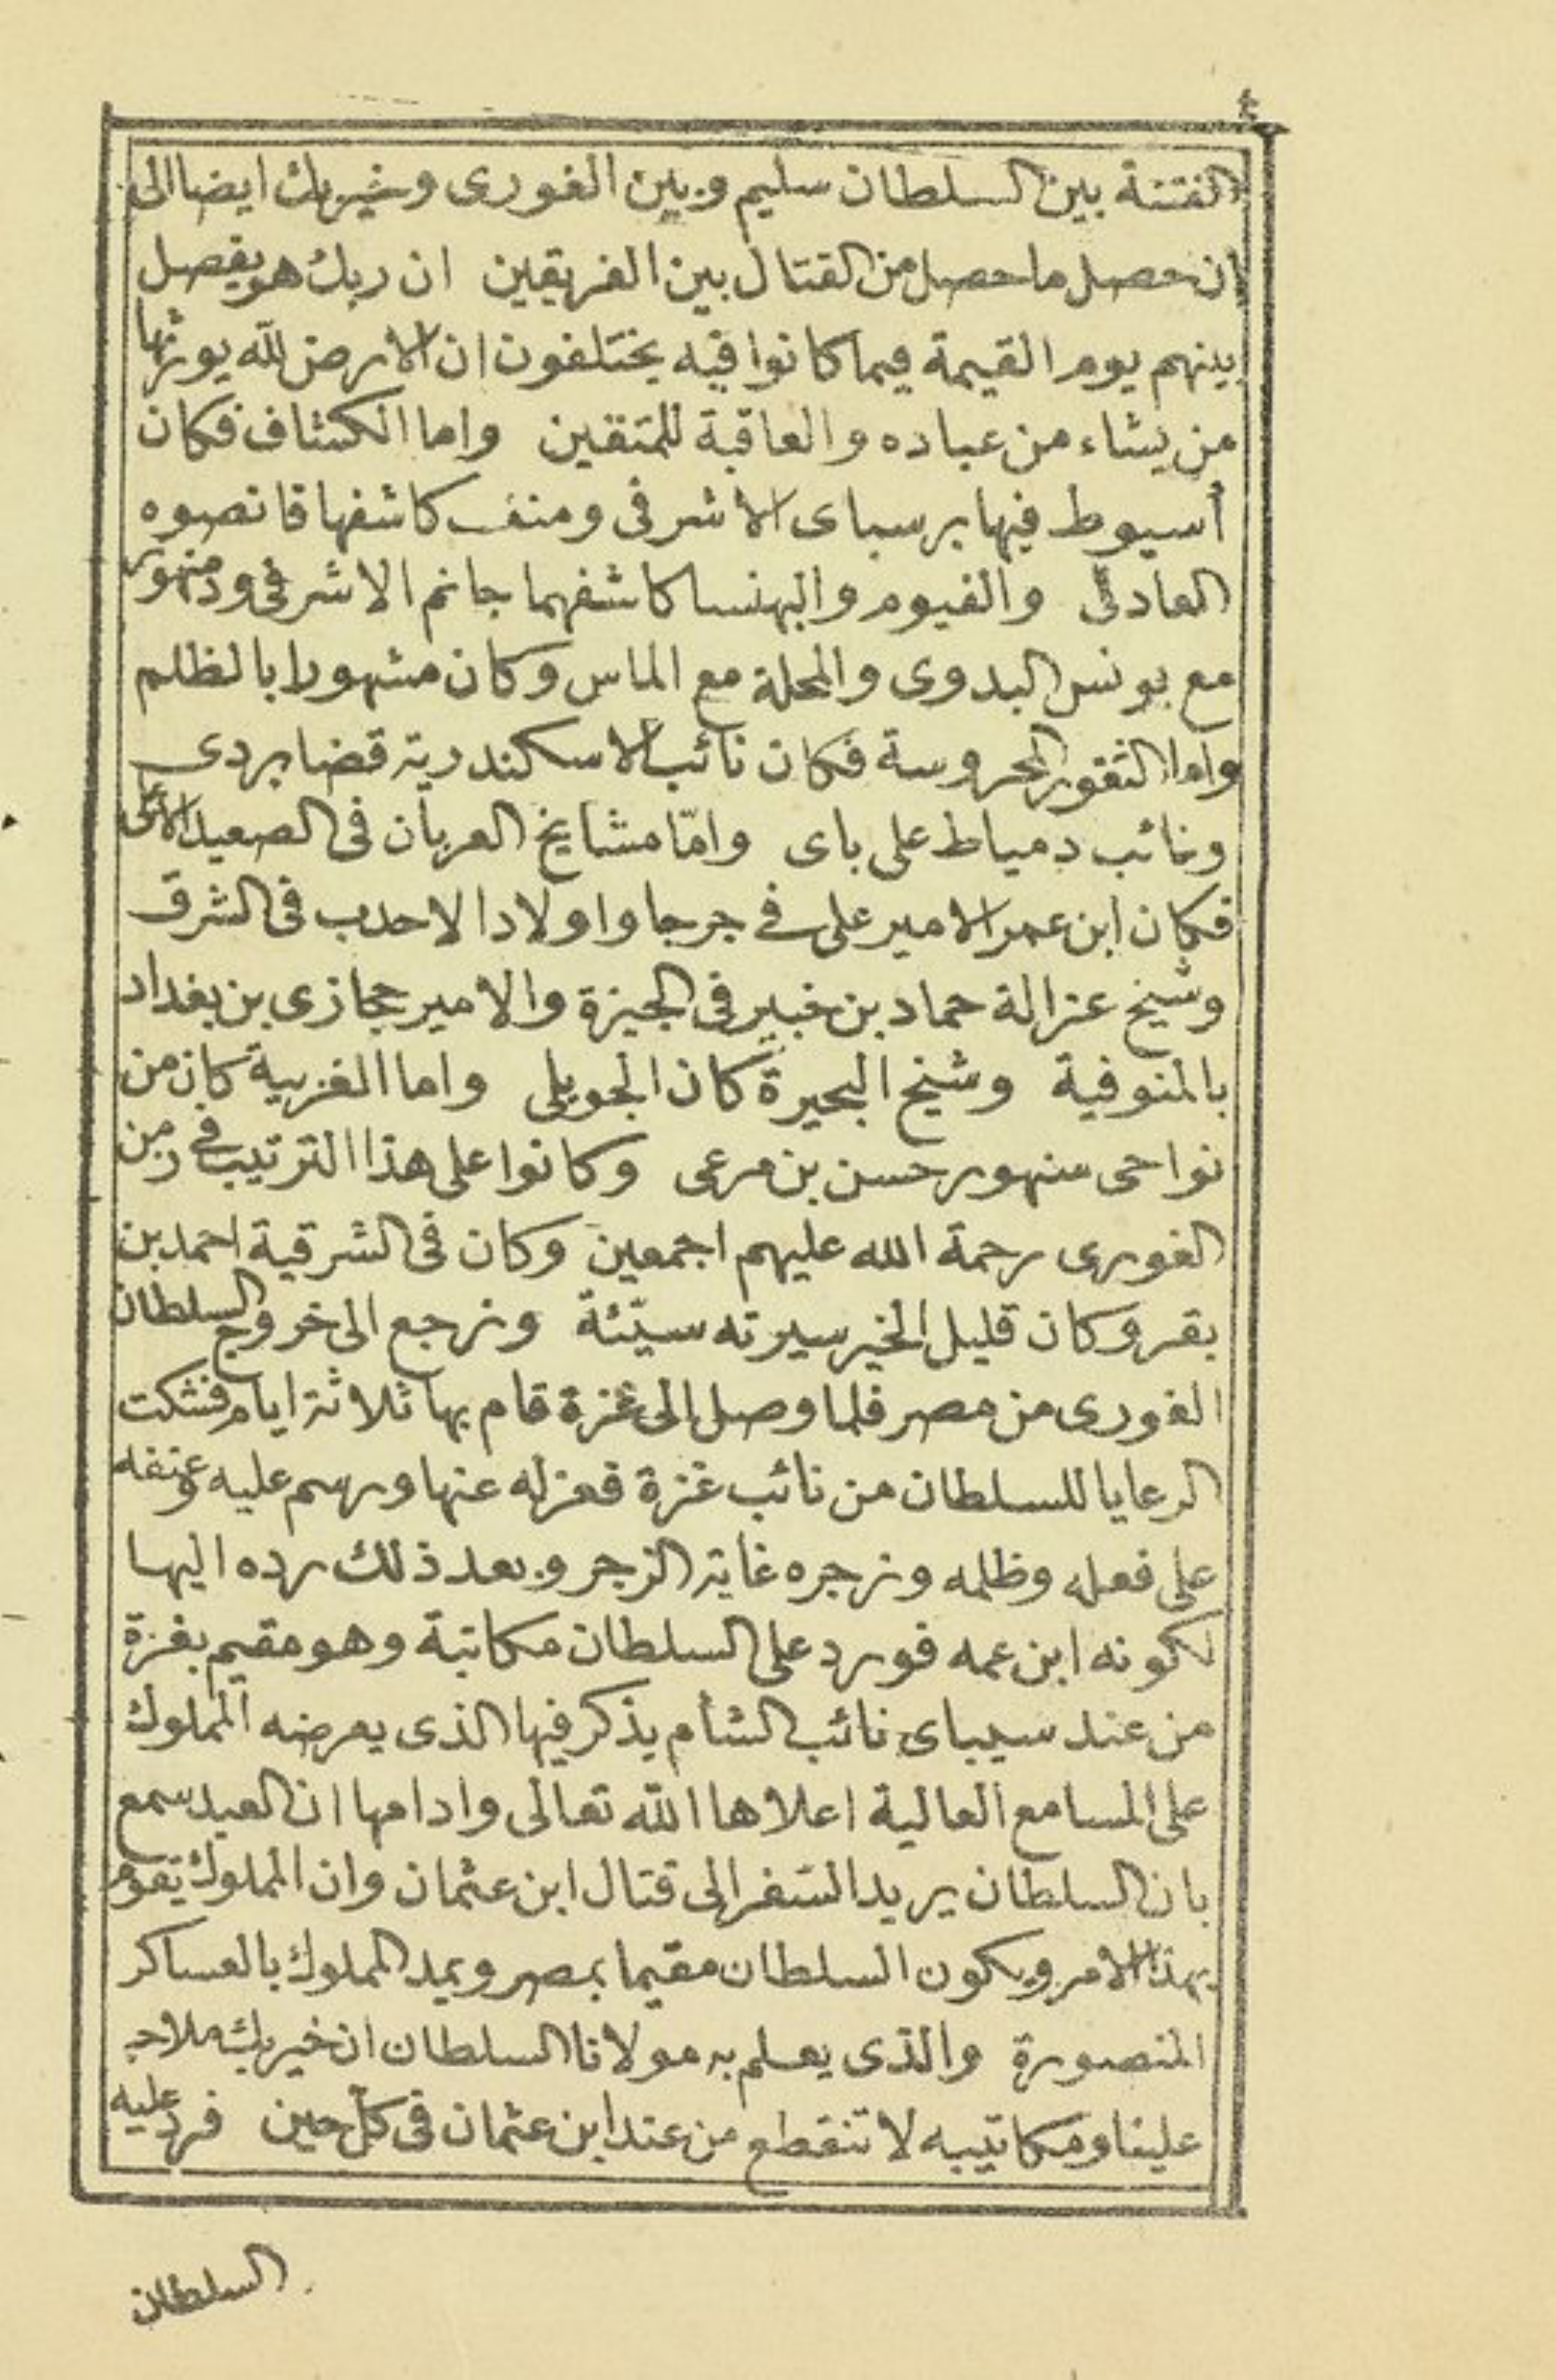 ٤
الفتنة بين السلطان سليم وبين الغورى وخيربك ايضا الى
ان حصل ما حصل من القتال بين الفريقين ان ربك هو يفصل
بينهم يوم القيمة فيما كانوا فيه يختلفون ان الارض لله يورثها
من يشاء من عباده والعاقبة للمتقين واما الكشاف فكان
أسيوط فيها برسباى الاشرفى ومنف كاشفها قانصوه
العادلى والفيوم والبهنسا كاشفهما جانم الاشرفى ودمنهور
مع يونس البدوى والمحلة مع الماس وكان مشهورا بالظلم
واما الثغور المحروسة فكان نائب الاسكندرية قضابردى
ونائب دمياط على باى وامّا مشايخ العربان فى الصعيد الاعلى
فكان ابن عمر الامير على فى جرجا واولاد الاحدب فى الشرق
وشيخ عزالة حماد بن خبير فى الجيزة والامير حجازى بن بغداد
بالمنوفية وشيخ البحيرة كان الجويلى واما الغربية كان من
نواحى سنهور حسن بن مرعى وكانوا على هذا الترتيب فى زمن
الغورى رحمة الله عليهم اجمعين وكان فى الشرقية احمد بن
بقر وكان قليل الخير سيرته سيّئة ونرجع الى خروج السلطان
الغورى من مصر فلما وصل الى غزة قام بها ثلاثة ايام فشكت
الرعايا للسلطان من نائب غزة فعزله عنها ورسم عليه وعنفه
على فعله وظلمه وزجره غاية الزجر وبعد ذلك رده اليها
لكونه ابن عمه فورد على السلطان مكاتبة وهو مقيم بغزة
من عند سيباى نائب الشأم يذكر فيها الذى يعرضه المملوك
على المسامع العالية اعلاها الله تعالى وادامها ان العبد سمع
بان السلطان يريد السّفر الى قتال ابن عثمان وان المملوك يقوم
بهذا الامر ويكون السلطان مقيما بمصر ويمد المملوك بالعساكر
المنصورة والذى يعلم به مولانا السلطان ان خيربك ملاحي
علينا ومكاتيبه لا تنقطع من عند ابن عثمان فى كل حين فرد عليه
السلطان